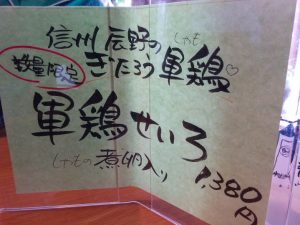 信州 辰野の
数量限定
ぎたろう軍鶏♡
しゃも
軍鶏せいろ
しゃもの煮卵入り
1,380円